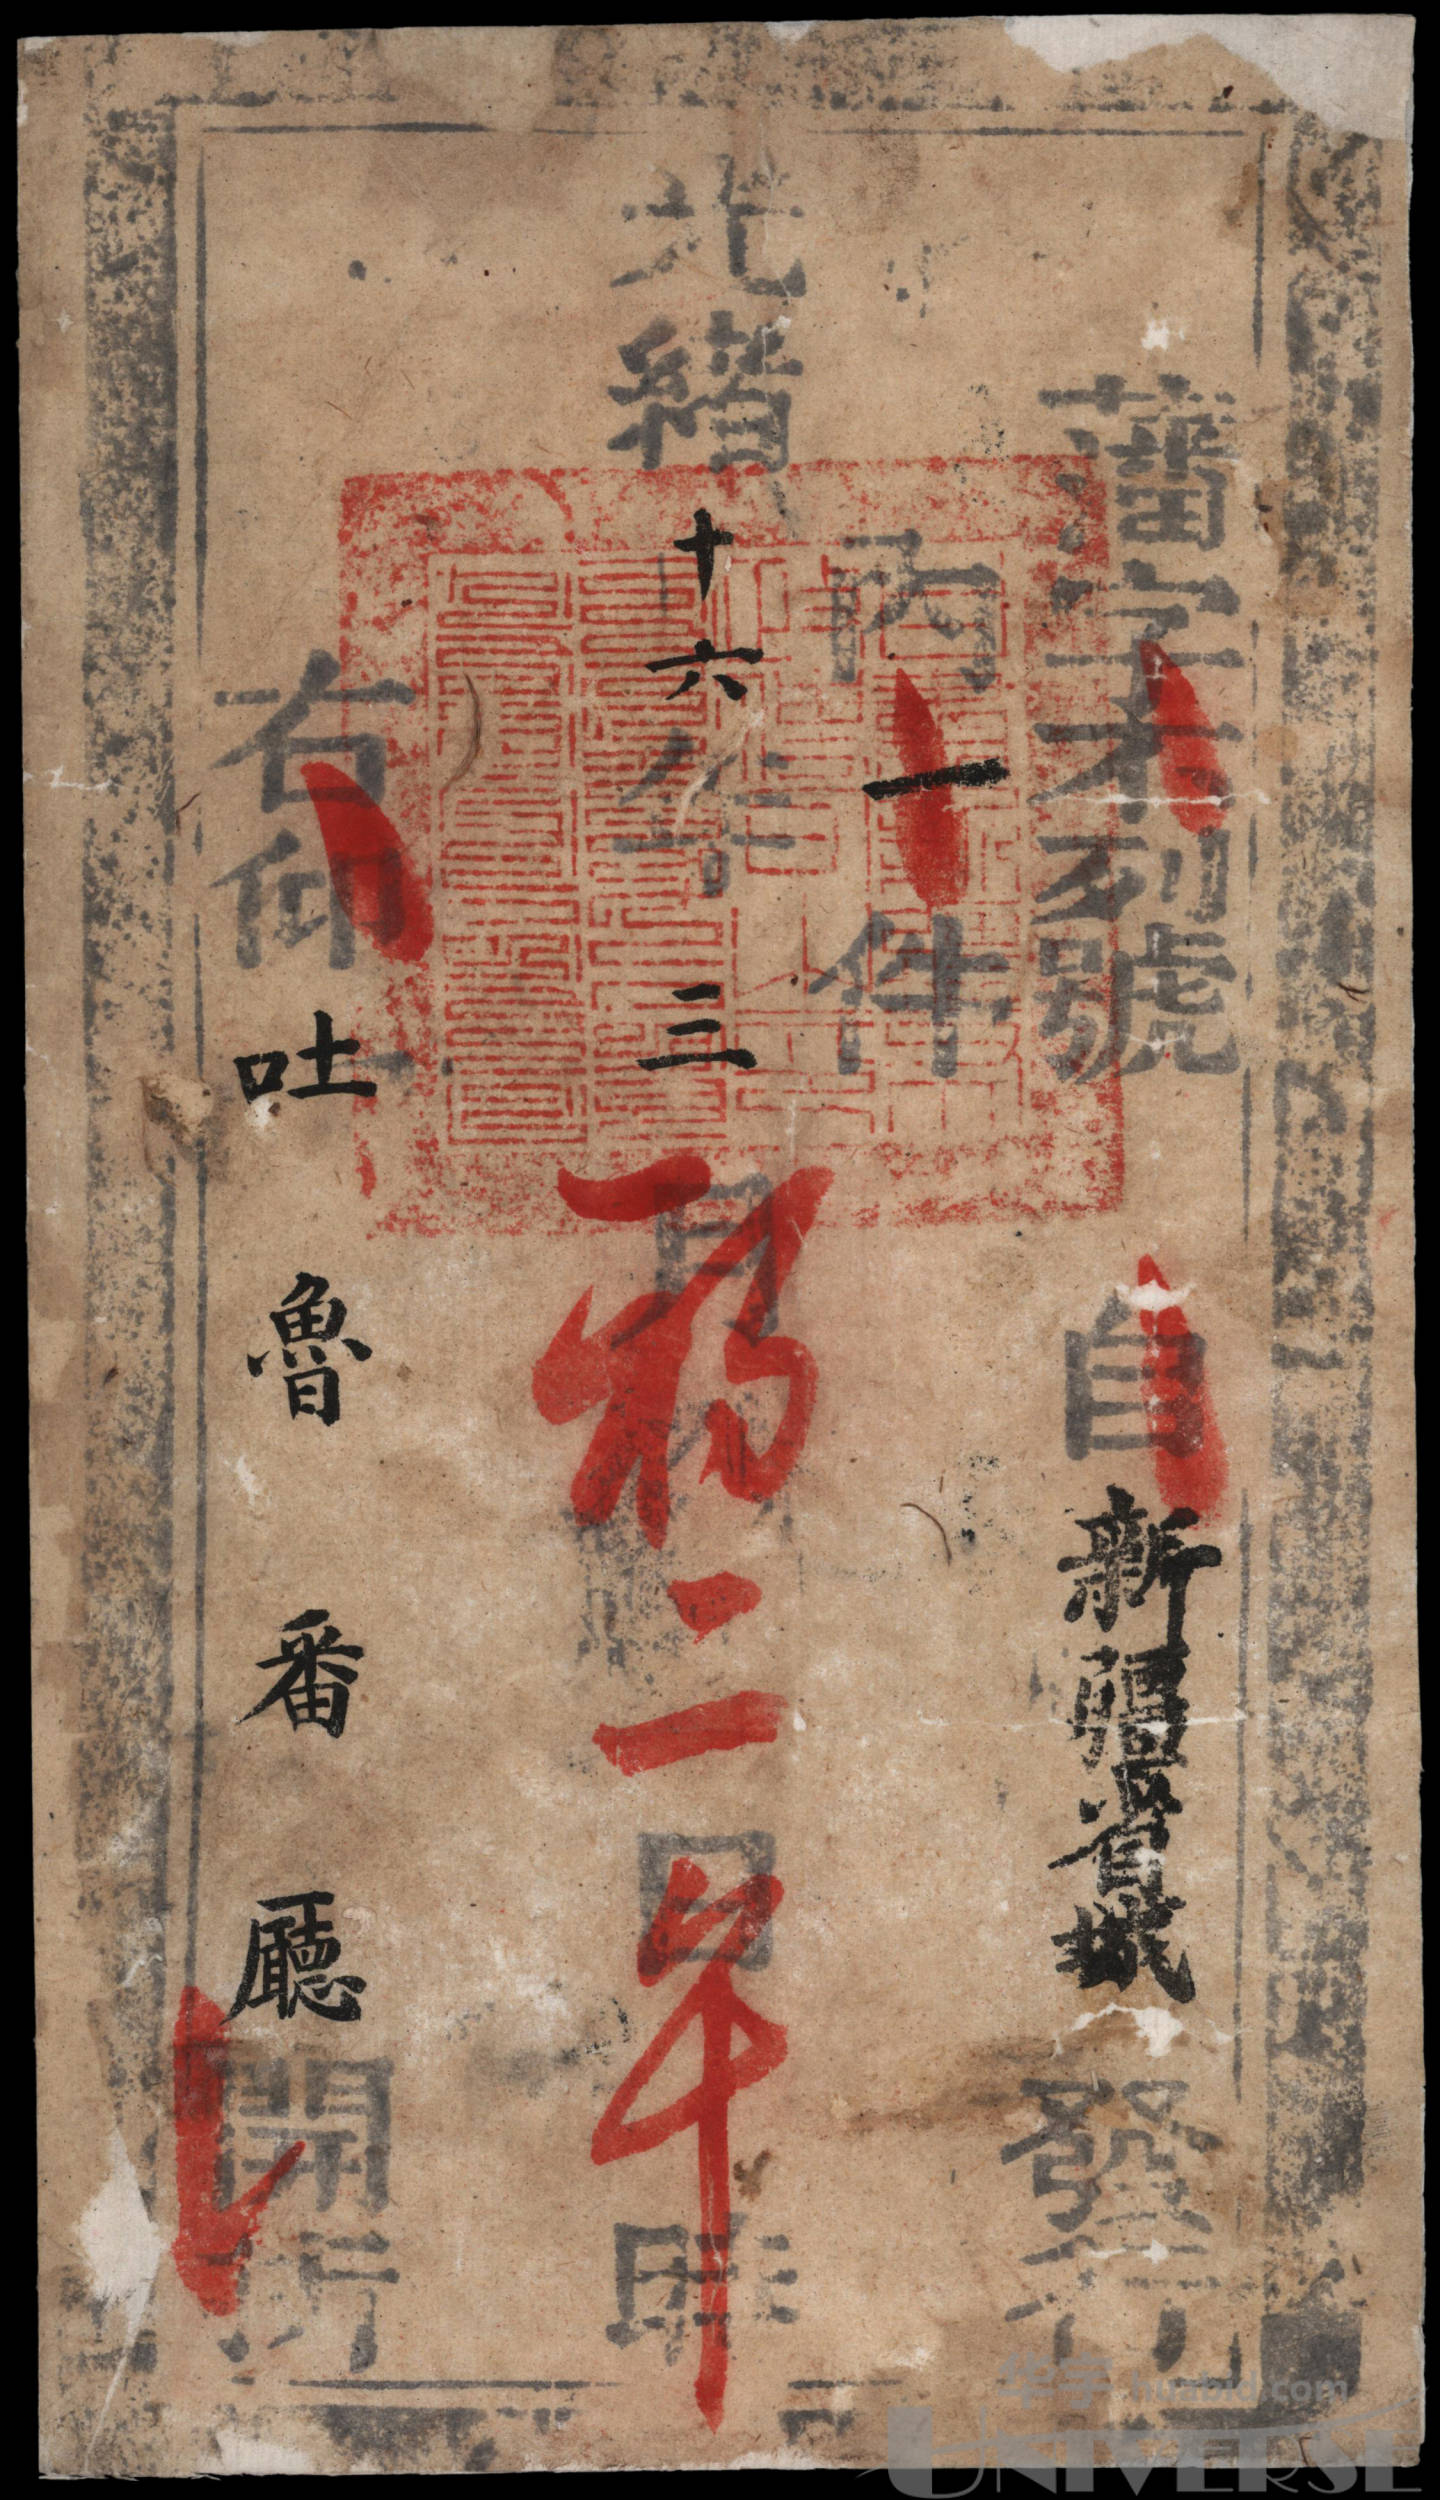 藩字未列號 自新疆省城發行
內一件
光緒十六年三月初二日午時
右仰吐魯番廳開拆
华宇 huabid.com
UNIVERSE